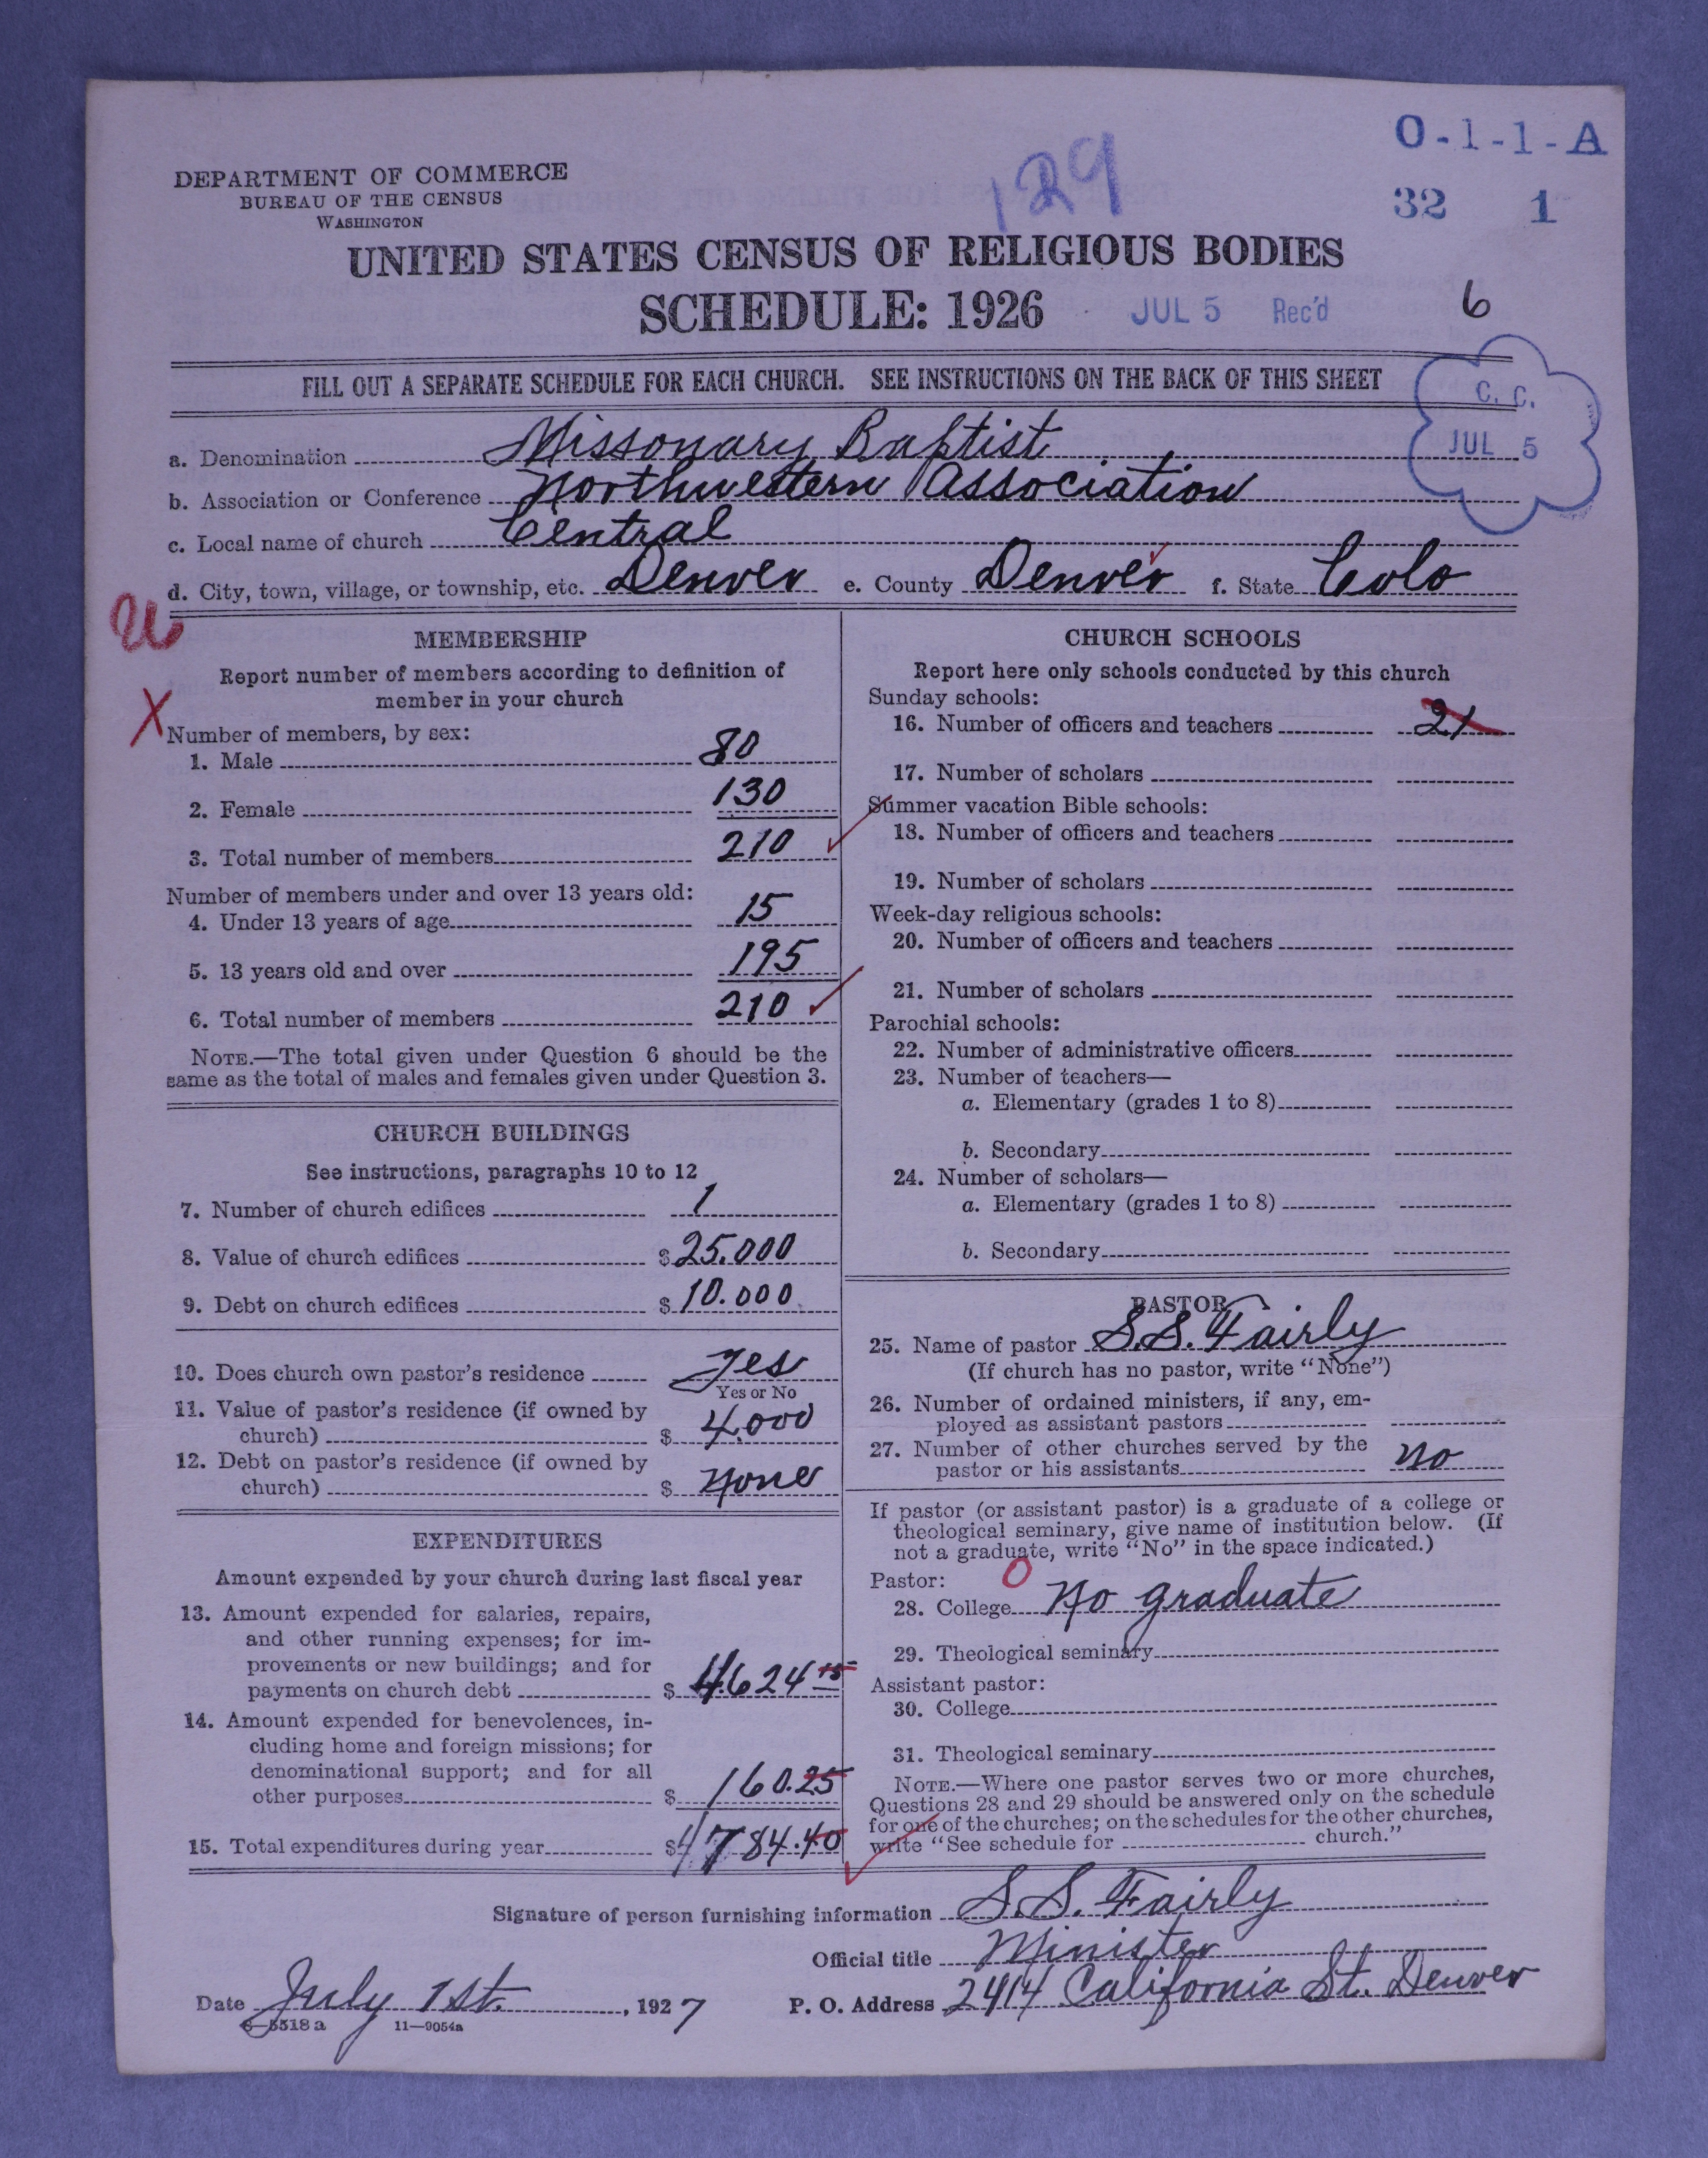 O-1-1-A
129
DEPARTMENT OF COMMERCE
BUREAU OF THE CENSUS
WASHINGTON
32 1
UNITED STATES CENSUS OF RELIGIOUS BODIES
SCHEDULE: 1926
JUL 5 Rec'd
6
FILL OUT A SEPARATE SCHEDULE FOR EACH CHURCH. SEE INSTRUCTIONS ON THE BACK OF THIS SHEET
C. C.
JUL 5
a. Denomination Missonary Baptist
b. Association or Conference Northwestern Association
c. Local name of church Central
d. City, town, village, or township, etc. Denver e. County Denver f. State Colo
MEMBERSHIP
Report number of members according to definition of
member in your church
X
Number of members, by sex:
1. Male 80
2. Female 130
3. Total number of members 210
Number of members under and over 13 years old:
4. Under 13 years of age 15
5. 13 years old and over 195
6. Total number of members 210
NOTE.—The total given under Question 6 should be the
same as the total of males and females given under Question 3.
CHURCH BUILDINGS
See instructions, paragraphs 10 to 12
7. Number of church edifices 1
8. Value of church edifices $ 25.000
9. Debt on church edifices $ 10.000
10. Does church own pastor's residence Yes
Yes or No
11. Value of pastor's residence (if owned by
church) $ 4,000
12. Debt on pastor's residence (if owned by
church) $ None
EXPENDITURES
Amount expended by your church during last fiscal year
13. Amount expended for salaries, repairs,
and other running expenses; for im-
provements or new buildings; and for
payments on church debt $ 4624 15
14. Amount expended for benevolences, in-
cluding home and foreign missions; for
denominational support; and for all
other purposes $ 160.25
15. Total expenditures during year $ 4784.40
CHURCH SCHOOLS
Report here only schools conducted by this church
Sunday schools:
16. Number of officers and teachers 21
17. Number of scholars
Summer vacation Bible schools:
18. Number of officers and teachers
19. Number of scholars
Week-day religious schools:
20. Number of officers and teachers
21. Number of scholars
Parochial schools:
22. Number of administrative officers
23. Number of teachers—
a. Elementary (grades 1 to 8)
b. Secondary
24. Number of scholars—
a. Elementary (grades 1 to 8)
b. Secondary
PASTOR
25. Name of pastor S.S. Fairly
(If church has no pastor, write "None")
26. Number of ordained ministers, if any, em-
ployed as assistant pastors
27. Number of other churches served by the
pastor or his assistants No
If pastor (or assistant pastor) is a graduate of a college or
theological seminary, give name of institution below. (If
not a graduate, write "No" in the space indicated.)
Pastor: 0
28. College No graduate
29. Theological seminary
Assistant pastor:
30. College
31. Theological seminary
NOTE.—Where one pastor serves two or more churches,
Questions 28 and 29 should be answered only on the schedule
for one of the churches; on the schedules for the other churches,
write "See schedule for church."
Signature of person furnishing information S.S. Fairly
Official title Minister
Date July 1st. , 1927 P. O. Address 2414 California St. Denver
8—5518a 11—9054a